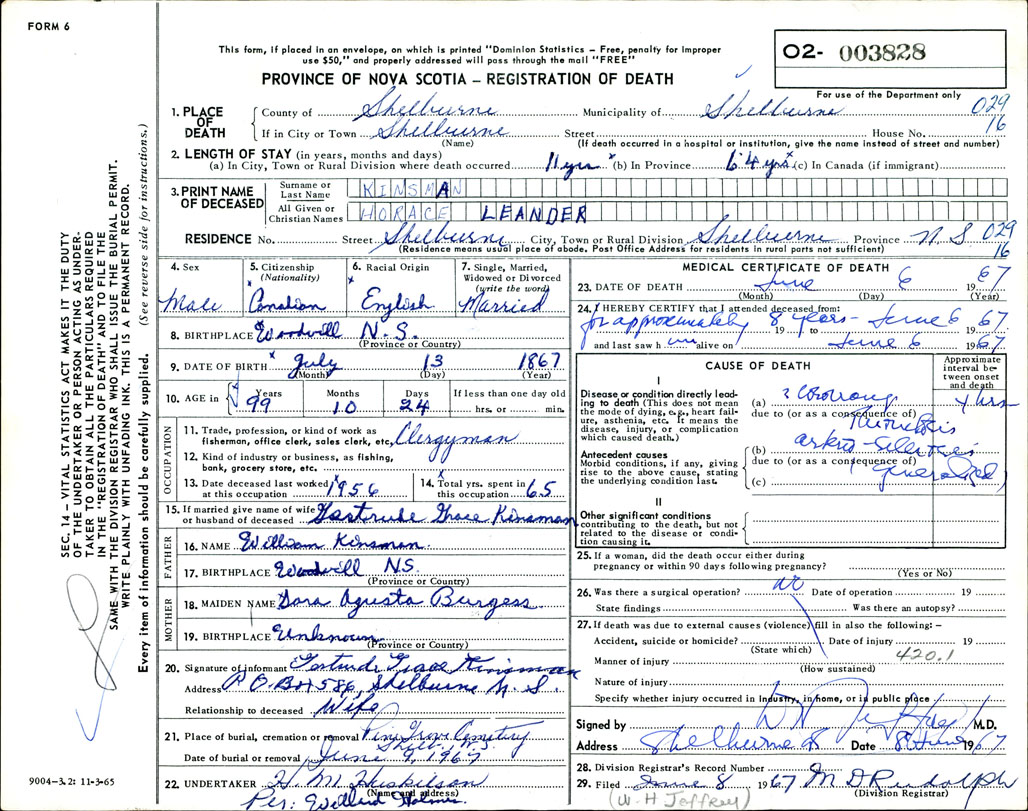 FORM 6
This form, if placed in an envelope, on which is printed "Dominion Statistics – Free, penalty for improper
use $50," and properly addressed will pass through the mail "FREE"
PROVINCE OF NOVA SCOTIA – REGISTRATION OF DEATH
02- 003828
For use of the Department only
029
16
1. PLACE OF DEATH
County of Shelburne Municipality of Shelburne
If in City or Town Shelburne Street House No.
(Name) (If death occurred in a hospital or institution, give the name instead of street and number)
2. LENGTH OF STAY (in years, months and days)
(a) In City, Town or Rural Division where death occurred 11 yrs (b) In Province 64 yrs (c) In Canada (if immigrant)
3. PRINT NAME OF DECEASED
Surname or Last Name KINSMAN
All Given or Christian Names HORACE LEANDER
RESIDENCE No. Street Shelburne City, Town or Rural Division Shelburne Province N S 029
16
(Residence means usual place of abode. Post Office Address for residents in rural parts not sufficient)
SEC. 14 – VITAL STATISTICS ACT MAKES IT THE DUTY
OF THE UNDERTAKER OR PERSON ACTING AS UNDER-
TAKER TO OBTAIN ALL THE PARTICULARS REQUIRED
IN THE "REGISTRATION OF DEATH" AND TO FILE THE
SAME WITH THE DIVISION REGISTRAR WHO SHALL ISSUE THE BURIAL PERMIT.
WRITE PLAINLY WITH UNFADING INK. THIS IS A PERMANENT RECORD.
Every item of information should be carefully supplied. (See reverse side for instructions.)
4. Sex
Male
5. Citizenship
(Nationality)
Canadian
6. Racial Origin
English
7. Single, Married,
Widowed or Divorced
(write the word)
Married
8. BIRTHPLACE Woodvill N.S.
(Province or Country)
9. DATE OF BIRTH July 13 1867
(Month) (Day) (Year)
10. AGE in Years 99 Months 10 Days 24 If less than one day old
hrs. or min.
OCCUPATION
11. Trade, profession, or kind of work as
fisherman, office clerk, sales clerk, etc, Clergyman
12. Kind of industry or business, as fishing,
bank, grocery store, etc.
13. Date deceased last worked
at this occupation 1956
14. Total yrs. spent in
this occupation 65
15. If married give name of wife
or husband of deceased Gertrude Grace Kinsman
FATHER
16. NAME William Kinsman
17. BIRTHPLACE Woodvill N.S.
(Province or Country)
MOTHER
18. MAIDEN NAME Sara Agusta Burgess
19. BIRTHPLACE Unknown
(Province or Country)
20. Signature of informant Gertrude Grace Kinsman
Address P O Box 586, Shelburne N. S.
Relationship to deceased Wife
21. Place of burial, cremation or removal Pine Grove Cemetery
Shelb. N.S.
Date of burial or removal June 9, 1967
22. UNDERTAKER H. M. Huskilson
(Name and address)
Per: Willard Holmes
9004-3.2: 11-3-65
MEDICAL CERTIFICATE OF DEATH
23. DATE OF DEATH June 6 1967
(Month) (Day) (Year)
24. I HEREBY CERTIFY that I attended deceased from:
for approximately 8 years 19 to June 6 1967
and last saw him alive on June 6 1967
CAUSE OF DEATH
Approximate
interval be-
tween onset
and death
I
Disease or condition directly lead-
ing to death (This does not mean
the mode of dying, e.g., heart fail-
ure, asthenia, etc. It means the
disease, injury, or complication
which caused death.)
(a) ? Coronary 4 hrs
due to (or as a consequence of)
Thrombosis
Antecedent causes
Morbid conditions, if any, giving
rise to the above cause, stating
the underlying condition last.
(b)
due to (or as a consequence of)
(c) generalized
II
Other significant conditions
contributing to the death, but not
related to the disease or condi-
tion causing it.
25. If a woman, did the death occur either during
pregnancy or within 90 days following pregnancy?
(Yes or No)
26. Was there a surgical operation? no Date of operation 19
State findings Was there an autopsy?
27. If death was due to external causes (violence) fill in also the following: –
Accident, suicide or homicide? Date of injury 19
(State which) 420.1
Manner of injury
(How sustained)
Nature of injury
Specify whether injury occurred in industry, in home, or in public place
Signed by M.D.
Address Shelburne Date 8 June 1967
28. Division Registrar's Record Number
29. Filed June 8 1967 M D Rudolph
(W. H Jeffrey) (Division Registrar)